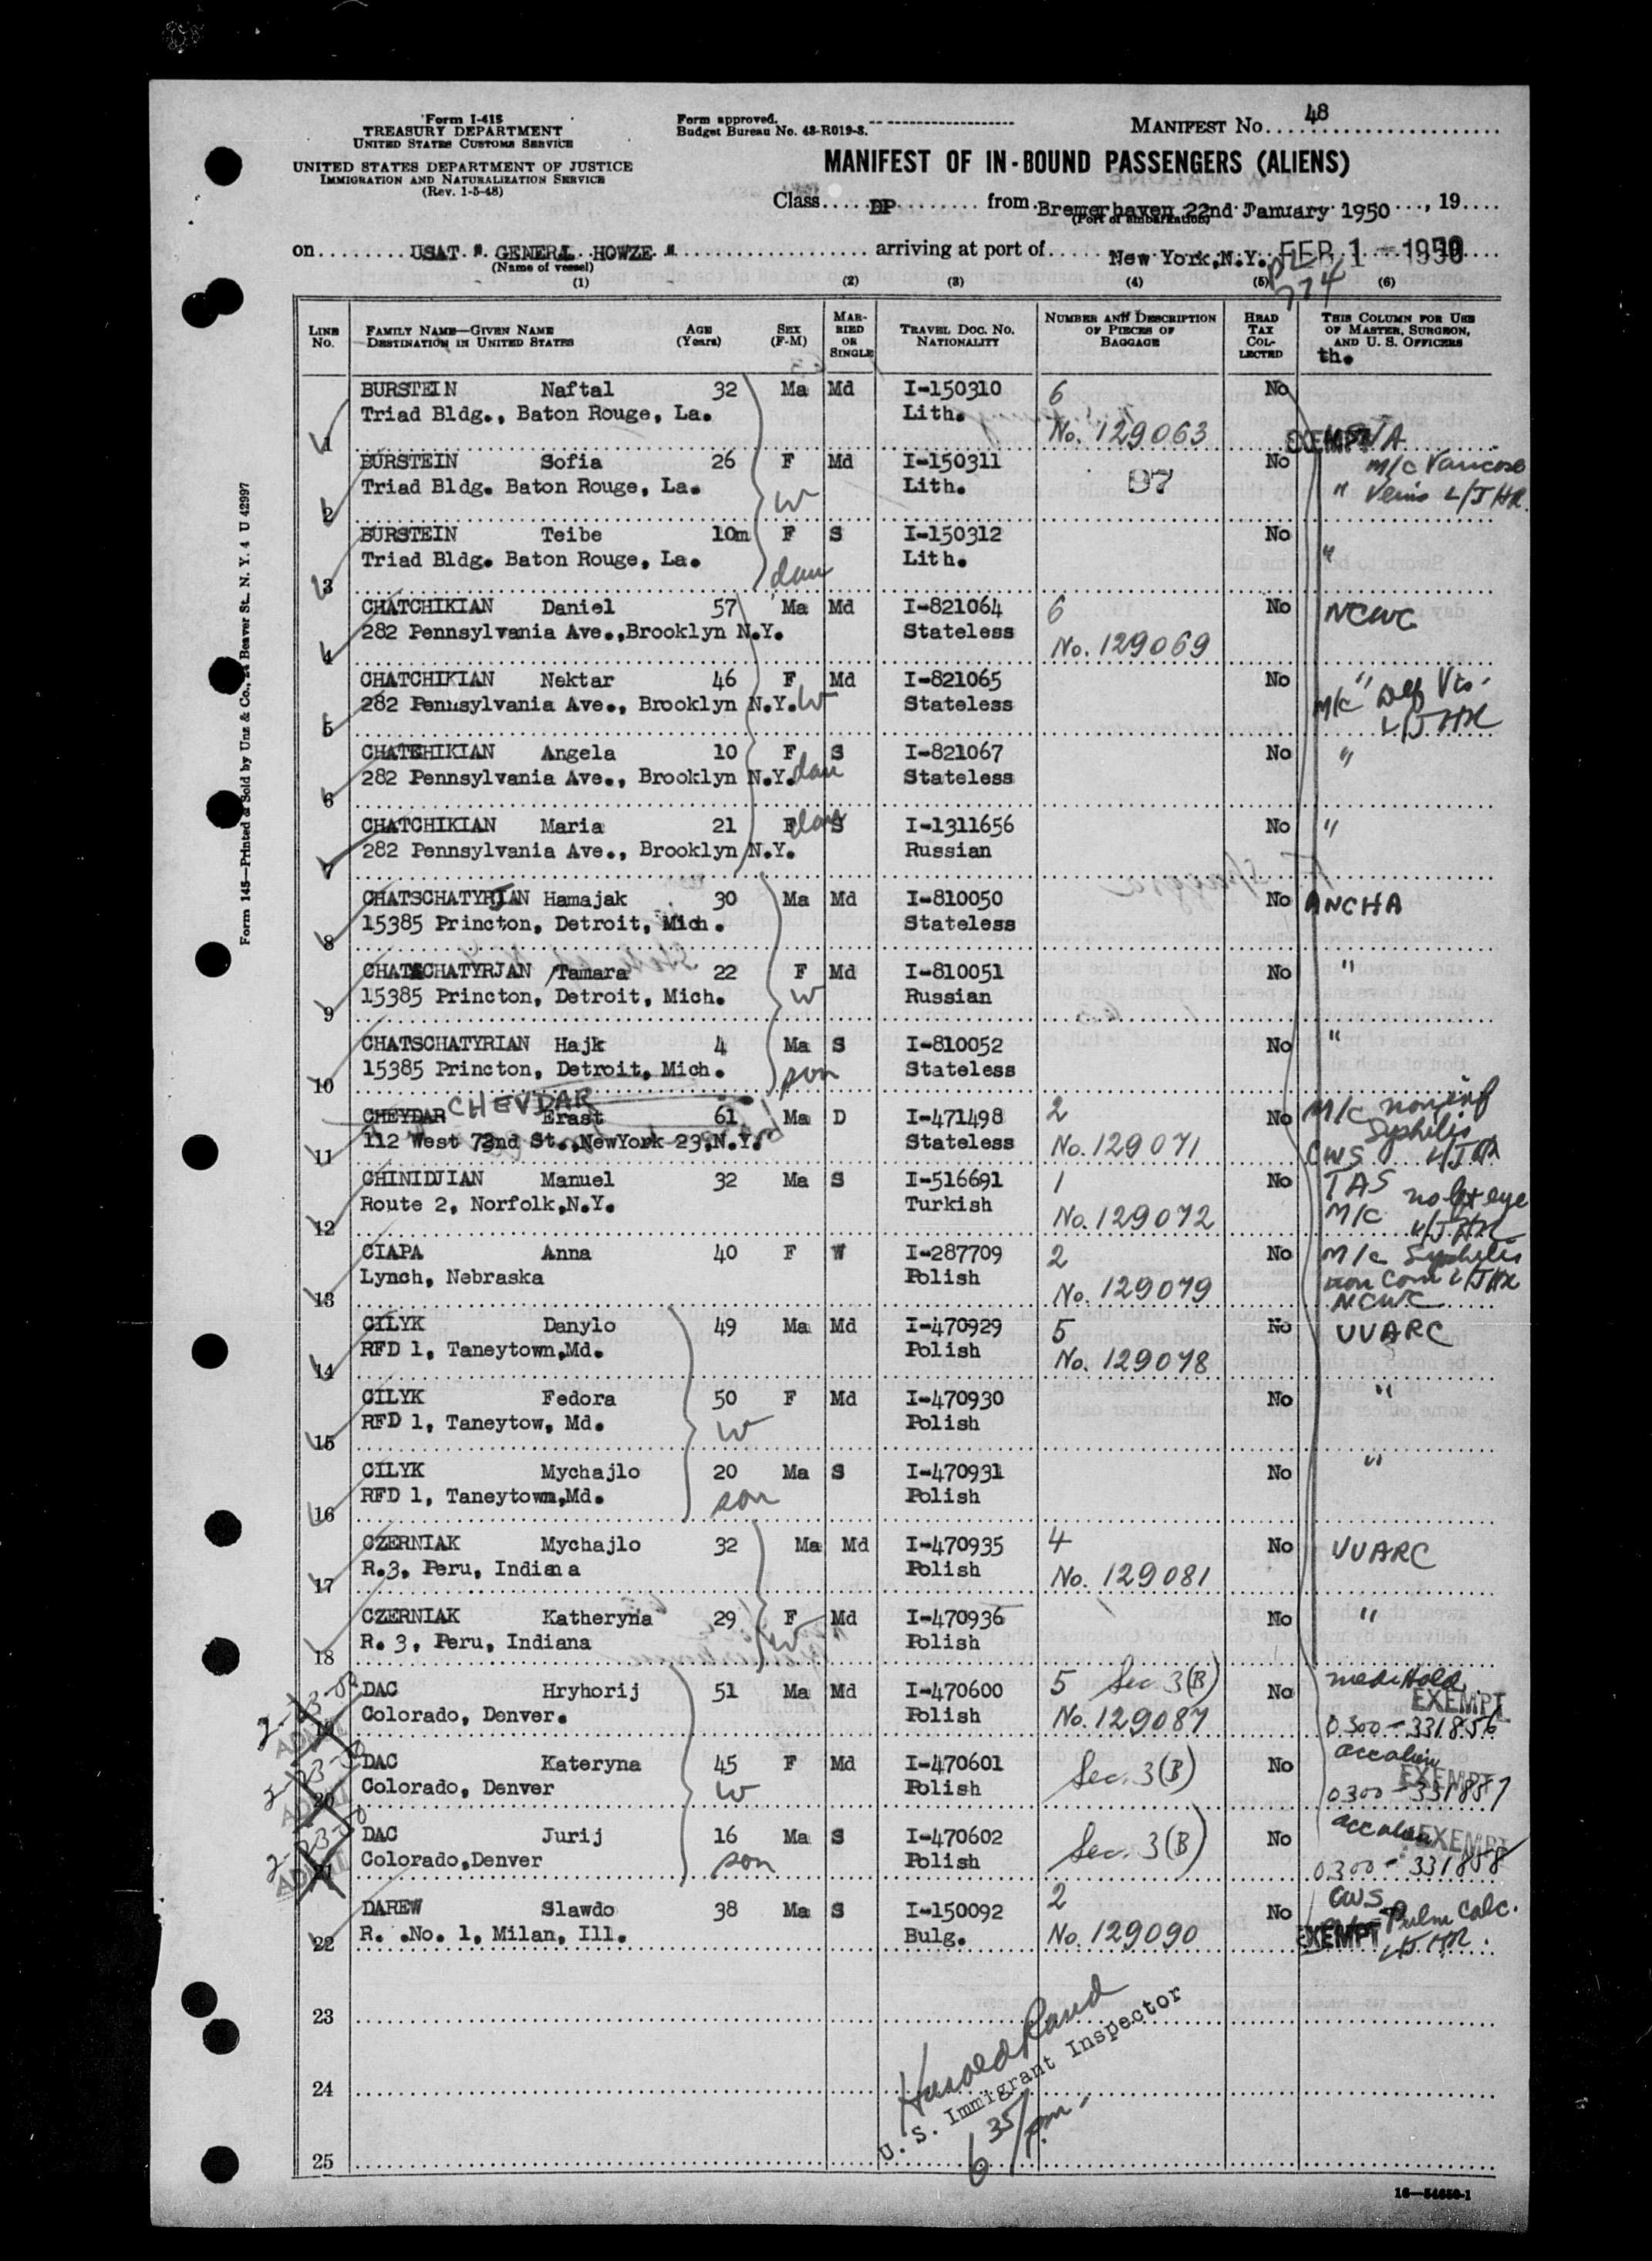 Form I-415
TREASURY DEPARTMENT
UNITED STATES CUSTOMS SERVICE
UNITED STATES DEPARTMENT OF JUSTICE
IMMIGRATION AND NATURALIZATION SERVICE
(Rev. 1-5-48)
Form approved.
Budget Bureau No. 43-R019-3.
MANIFEST No. 48
MANIFEST OF IN-BOUND PASSENGERS (ALIENS)
Class DP from Bremerhaven 22nd January 1950, 19
(Port of embarkation)
on USAT " GENERAL HOWZE " arriving at port of New York, N.Y. FEB 1 - 1950
(Name of vessel)
(1) (2) (3) (4) (5) (6)
LINE No. FAMILY NAME—GIVEN NAME DESTINATION IN UNITED STATES AGE (Years) SEX (F-M) MARRIED OR SINGLE TRAVEL DOC. No. NATIONALITY NUMBER AND DESCRIPTION OF PIECES OF BAGGAGE HEAD TAX COLLECTED THIS COLUMN FOR USE OF MASTER, SURGEON, AND U. S. OFFICERS
th.
BURSTEIN Naftal 32 Ma Md I-150310 6 No
Triad Bldg., Baton Rouge, La. Lith.
1 No. 129063 EXEMPT
BURSTEIN Sofia 26 F Md I-150311 No m/c Varicose
Triad Bldg. Baton Rouge, La. w Lith. 97 " Veins L/J HR
2
BURSTEIN Teibe 10m F S I-150312 No "
Triad Bldg. Baton Rouge, La. Lith.
3 dau
CHATCHIKIAN Daniel 57 Ma Md I-821064 6 No NCWC
282 Pennsylvania Ave.,Brooklyn N.Y. Stateless
4 No. 129069
CHATCHIKIAN Nektar 46 F Md I-821065 No "
282 Pennsylvania Ave., Brooklyn N.Y. W Stateless M/C Def Vis-
5 L/J HR
CHATCHIKIAN Angela 10 F S I-821067 No "
282 Pennsylvania Ave., Brooklyn N.Y. dau Stateless
6
CHATCHIKIAN Maria 21 F dau S I-1311656 No "
282 Pennsylvania Ave., Brooklyn N.Y. Russian
7
CHATSCHATYRJAN Hamajak 30 Ma Md I-810050 No ANCHA
15385 Princton, Detroit, Mich. Stateless
8
CHATSCHATYRJAN Tamara 22 F Md I-810051 No "
15385 Princton, Detroit, Mich. w Russian
9
CHATSCHATYRIAN Hajk 4 Ma S I-810052 No "
15385 Princton, Detroit, Mich. son Stateless
10
CHEVDAR
CHEYDAR Erast 61 Ma D I-471498 2 No M/C non inf
112 West 72nd St.,NewYork 23,N.Y. Stateless Syphilis
11 No. 129071 CWS L/J HR
CHINIDJIAN Manuel 32 Ma S I-516691 1 No TAS
Route 2, Norfolk,N.Y. Turkish M/C no lft eye
12 No. 129072 L/J HR
CIAPA Anna 40 F W I-287709 2 No M/c Syphilis
Lynch, Nebraska Polish non Com L/J HR
13 No. 129079 NCWC
CILYK Danylo 49 Ma Md I-470929 5 No UUARC
RFD 1, Taneytown,Md. Polish
14 No. 129078
CILYK Fedora 50 F Md I-470930 No "
RFD 1, Taneytow, Md. w Polish
15
CILYK Mychajlo 20 Ma S I-470931 No "
RFD 1, Taneytown,Md. son Polish
16
CZERNIAK Mychajlo 32 Ma Md I-470935 4 No UUARC
R.3, Peru, Indiana Polish
17 No. 129081
CZERNIAK Katheryna 29 F Md I-470936 No "
R. 3, Peru, Indiana w Polish
18
DAC Hryhorij 51 Ma Md I-470600 5 Sec. 3(B) No med Hold
Colorado, Denver. Polish EXEMPT
19 No. 129087 0300-331856
DAC Kateryna 45 F Md I-470601 No acc alien
Colorado, Denver w Polish Sec. 3(B) EXEMPT
20 0300-331857
DAC Jurij 16 Ma S I-470602 No acc alien EXEMPT
Colorado,Denver son Polish Sec. 3(B)
21 0300-331858
DAREW Slawdo 38 Ma S I-150092 2 No CWS
R. .No. 1, Milan, Ill. Bulg. Pulm Calc.
22 No. 129090 EXEMPT L/J HR.
23
24
25
Harold Rand
U. S. Immigrant Inspector
6 35/pm-
16—54650-1
Form 145—Printed & Sold by Unz & Co., 24 Beaver St., N. Y. 4 U 42997